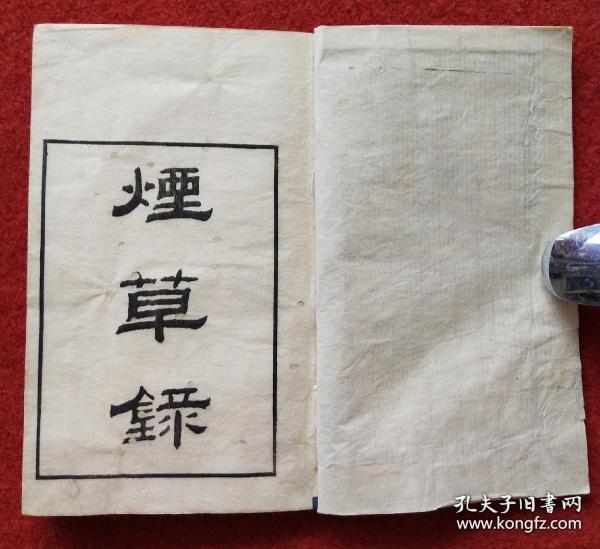 煙草錄
孔夫子旧書网
www.kongfz.com